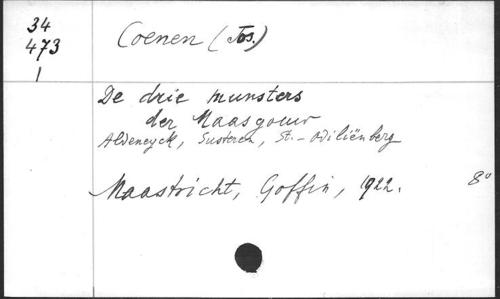 34
473
1
Coenen (Jos.)
De drie munsters
der Maasgouw
Aldeneyck, Susteren, St.-Odiliënberg
Maastricht, Goffin, 1922.
8°